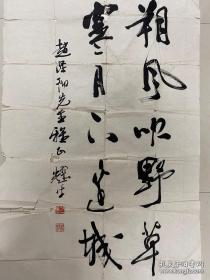 朔风吹野草
寒月下边城
赵泽阳先生雅正